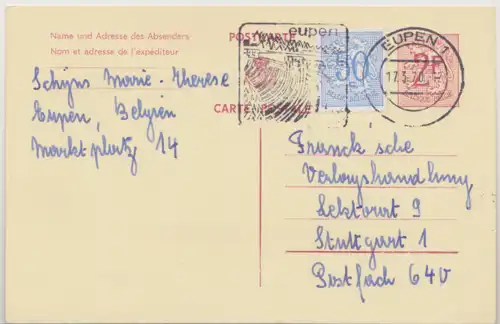 Name und Adresse des Absenders
Nom et adresse de l'expéditeur
POSTKARTE
CARTE POSTALE
eupen
50
EUPEN-1
17.3.70
2F
Schijns Marie-Therese
Eupen, Belgien
Marktplatz 14
Franck'sche
Verlagshandlung
Lektorat 9
Stuttgart 1
Postfach 640